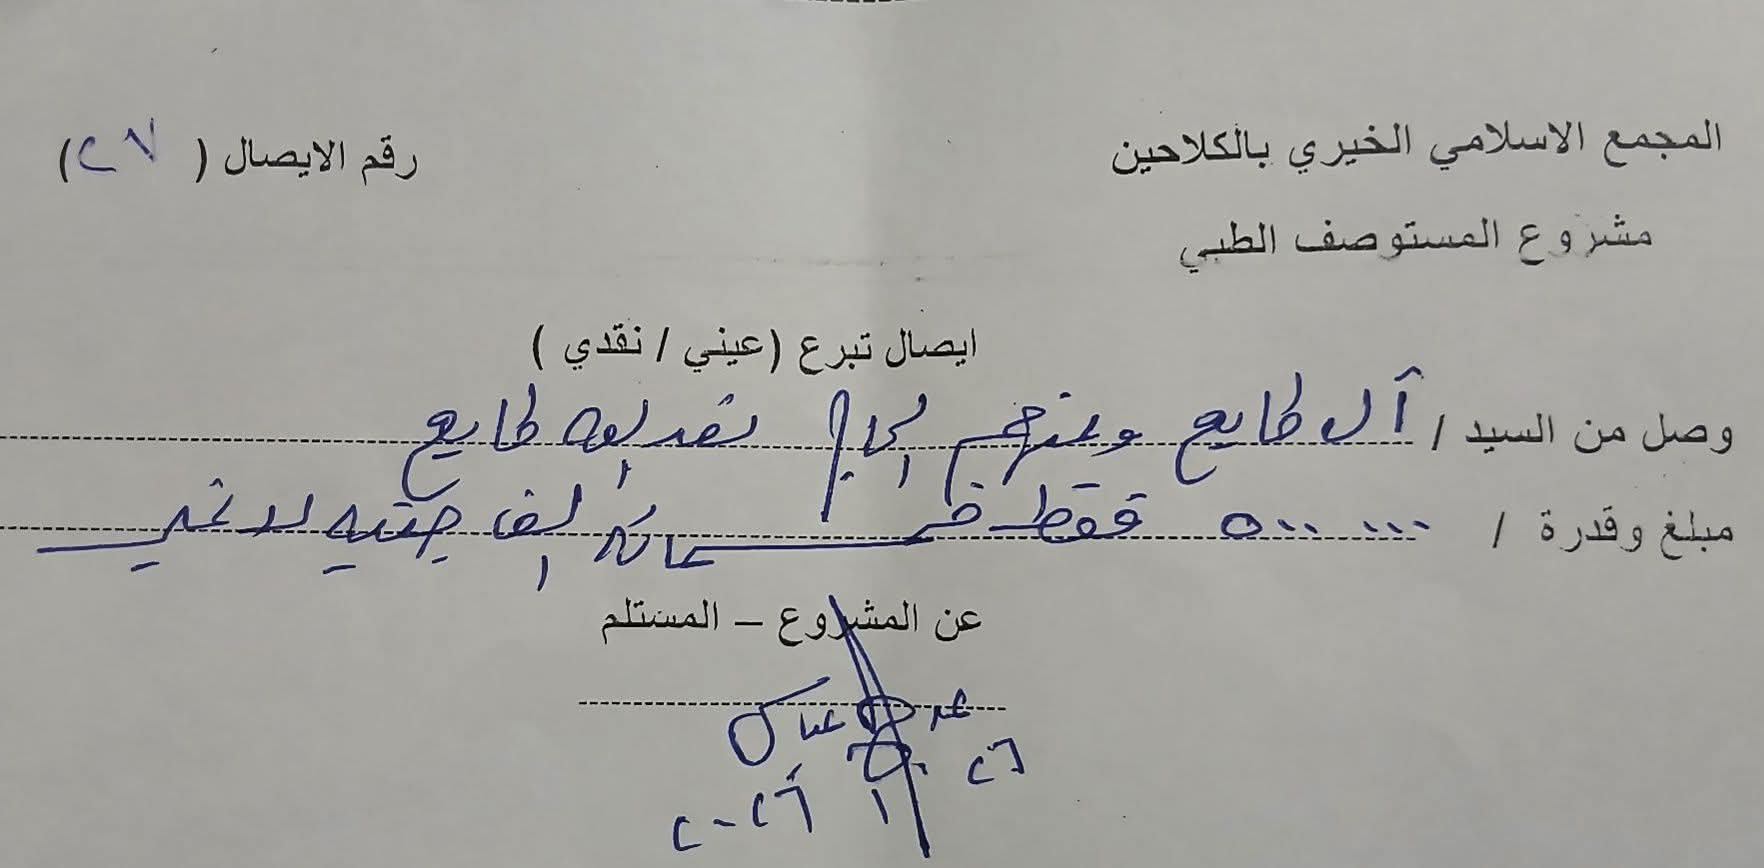 المجمع الاسلامي الخيري بالكلاحين
رقم الايصال (٢٧)
مشروع المستوصف الطبي
ايصال تبرع (عيني / نقدي )
وصل من السيد / آل طايع وعنهم الحاج سعد الله طايع
مبلغ وقدرة / ٥٠٠٠٠٠ فقط خمسمائة الف جنيه لاغير
عن المشروع – المستلم
عباس
٢٦
٢٠٢٦